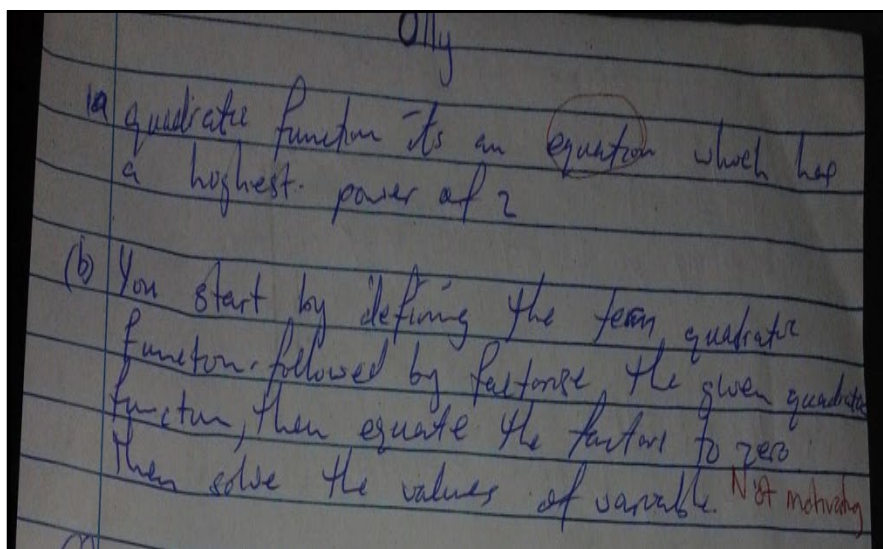 Olly
1a quadratic function its an equation which has
a highest power of 2
(b) You start by defining the term quadratic
function. followed by factorise the given quadratic
function, then equate the factors to zero
then solve the values of variable. Not motivating